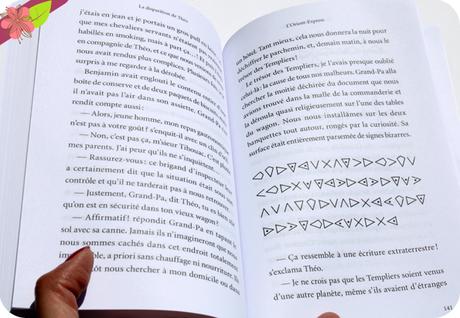 La disparition de Théo
j'étais en jean et je portais un gros pull en
que mes chevaliers servants n'étaient pas
habillés en smoking, mais à part ça...
en compagnie de Théo, et ce que nous
avait rendus plus complices. Plusieurs
surpris à me regarder à la dérobée.
Benjamin avait englouti le contenu d'une
boîte de conserve et de deux paquets de
il n'avait pas l'air dans son assiette. Grand-Pa
rendit compte aussi :
— Alors, jeune homme, mon repas
n'est pas à votre goût ? s'enquit-il avec un
— Non, c'est pas ça, m'sieur Tibonac. C'est
mes parents. J'ai peur qu'ils ne s'inquiètent...
— Rassurez-vous : ce brigand d'inspecteur
a certainement dit que la situation était sous
contrôle et qu'il ne tarderait pas à nous retrouver.
— Justement, Grand-Pa, dit Théo, tu es bien
qu'on est en sécurité dans ton vieux wagon ?
— Affirmatif ! répondit Grand-Pa en tapant le
sol avec sa canne. Jamais ils n'imagineront que
nous sommes cachés dans cet endroit totalement
a priori sans chauffage ni nourriture.
nous chercher à mon domicile ou dans
L'Orient-Express
un hôtel. Tant mieux, cela nous donnera la nuit pour
déchiffrer le parchemin, et, demain matin, à nous le
trésor des Templiers !
Le trésor des Templiers, je l'avais presque oublié
celui-là : la cause de tous nos malheurs. Grand-Pa alla
chercher la moitié déchirée du document que nous
avions trouvé dans la malle de la commanderie et
la déroula quasi religieusement sur l'une des tables
du wagon. Nous nous installâmes sur les deux
banquettes tout autour, rongés par la curiosité. Sa
surface était entièrement parsemée de signes bizarres.
— Ça ressemble à une écriture extraterrestre !
s'exclama Théo.
— Je ne crois pas que les Templiers soient venus
d'une autre planète, même s'ils avaient d'étranges
141